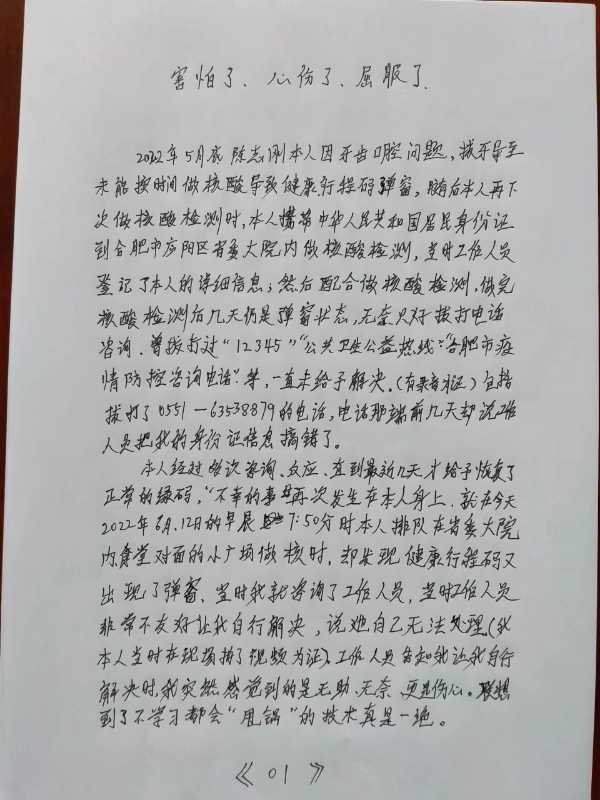 害怕了、心伤了、屈服了.
2022年5月底陈志刚本人因牙齿口腔问题，拔牙导至
未能按时间做核酸导致健康行程码弹窗，随后本人再下
次做核酸检测时，本人携带中华人民共和国居民身份证
到合肥市庐阳区省委大院内做核酸检测，当时工作人员
登记了本人的详细信息；然后配合做核酸检测，做完
核酸检测后几天仍是弹窗状态，无奈只好拨打电话
咨询．曾拨打过“12345”“公共卫生公益热线”“合肥市疫
情防控咨询电话”等，一直未给予解决。(有录音为证）包括
拨打了0551－63538879的电话，电话那端前几天却说工作
人员把我的身份证信息搞错了。
本人经过多次咨询、反应、直到最近几天才给予恢复了
正常的绿码，“不幸的事再次发生在本人身上．就在今天
2022年6月.12日的早晨7:50分时本人排队在省委大院
内食堂对面的小广场做核时，却发现健康行程码又
出现了弹窗、当时我就咨询了工作人员，当时工作人员
非常不友好让我自行解决，说她自己无法处理．(我
本人当时在现场拍了视频为证）、工作人员告知我让我自行
解决时我突然感觉到的是无助、无奈、更是伤心。联想
到了不学习都会“甩锅”的技术真是一绝。
《01》